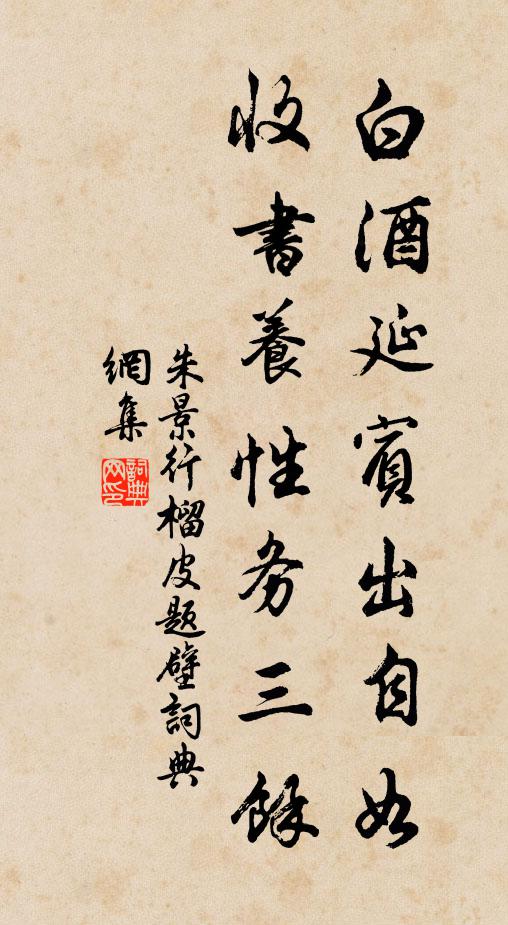 白酒延賓出自如
收書養性务三餘
朱景行榴皮題壁詞典
網集
詞典網印